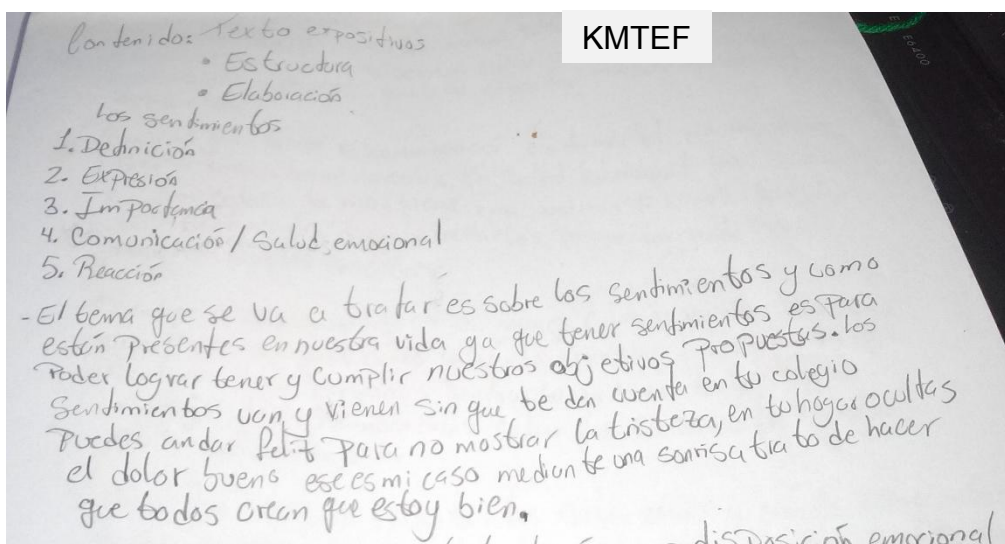 KMTEF
Contenido: Texto expositivos
• Estructura
• Elaboración
Los sentimientos
1. Dednición
2. Expresión
3. Importancia
4. Comunicación / Salud emocional
5. Reacción
- El tema que se va a tratar es sobre los sentimientos y como
están presentes en nuestra vida ya que tener sentimientos es para
Poder lograr tener y cumplir nuestros objetivos propuestos. los
Sendimientos van y vienen sin que te den cuenta en tu colegio
Puedes andar feliz para no mostrar la tristeza, en tu hogar ocultas
el dolor bueno ese es mi caso mediante una sonrisa trato de hacer
que todos crean que estoy bien.
disposición emocional